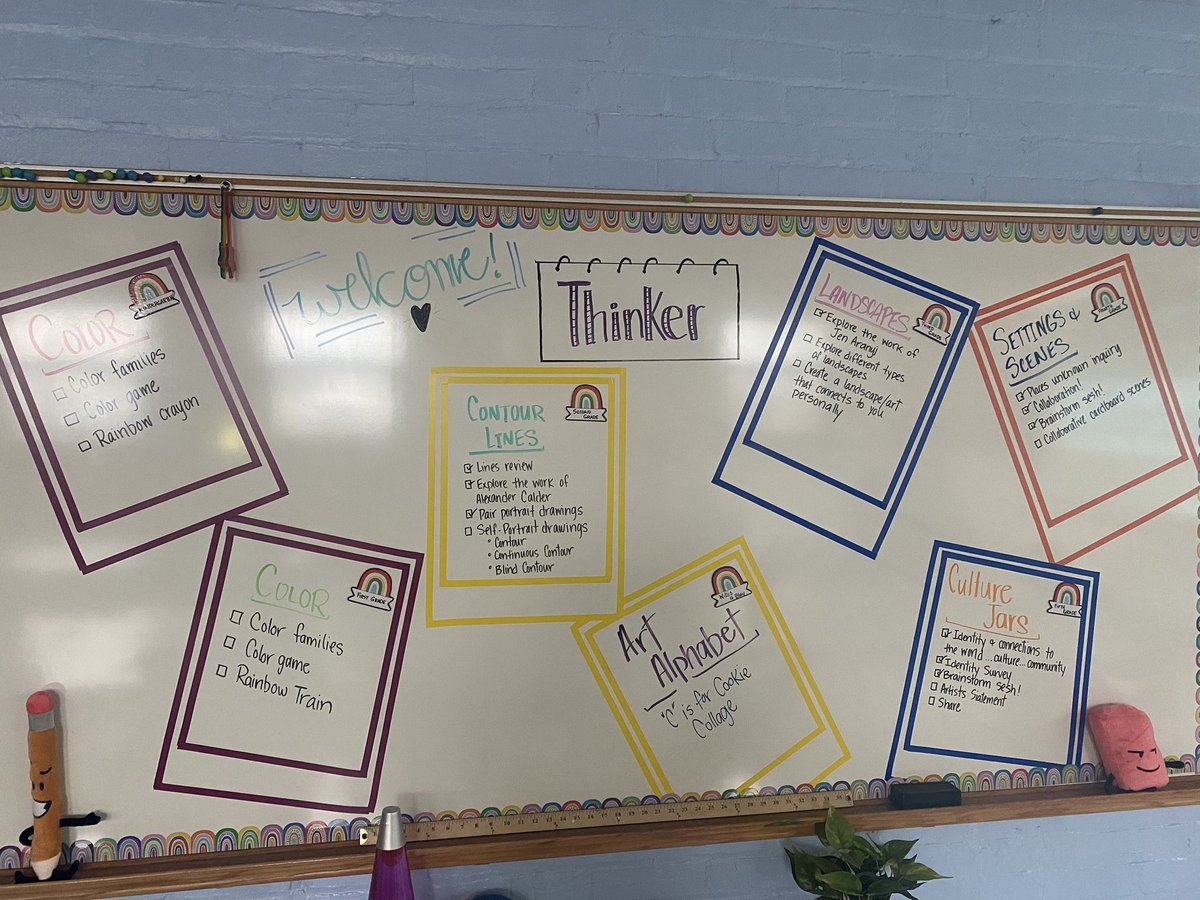 welcome!
Thinker
COLOR
KINDERGARTEN
Color families
Color game
Rainbow crayon
COLOR
FIRST GRADE
Color families
Color game
Rainbow Train
CONTOUR
LINES
SECOND GRADE
Lines review
Explore the work of
Alexander Calder
Pair portrait drawings
Self-Portrait drawings
Contour
Continuous Contour
Blind Contour
Art
Alphabet
"C" is for Cookie
Collage
LANDSCAPES
THIRD GRADE
Explore the work of
Jen Aranyi
Explore different types
of landscapes
Create a landscape/art
that connects to you
personally
SETTINGS &
SCENES
FOURTH GRADE
Places unknown inquiry
Collaboration!
Brainstorm sesh!
Collaborative cardboard scenes
Culture
Jars
FIFTH GRADE
Identity & connections to
the world...culture...community
Identity Survey
Brainstorm sesh!
Artists Statement
Share